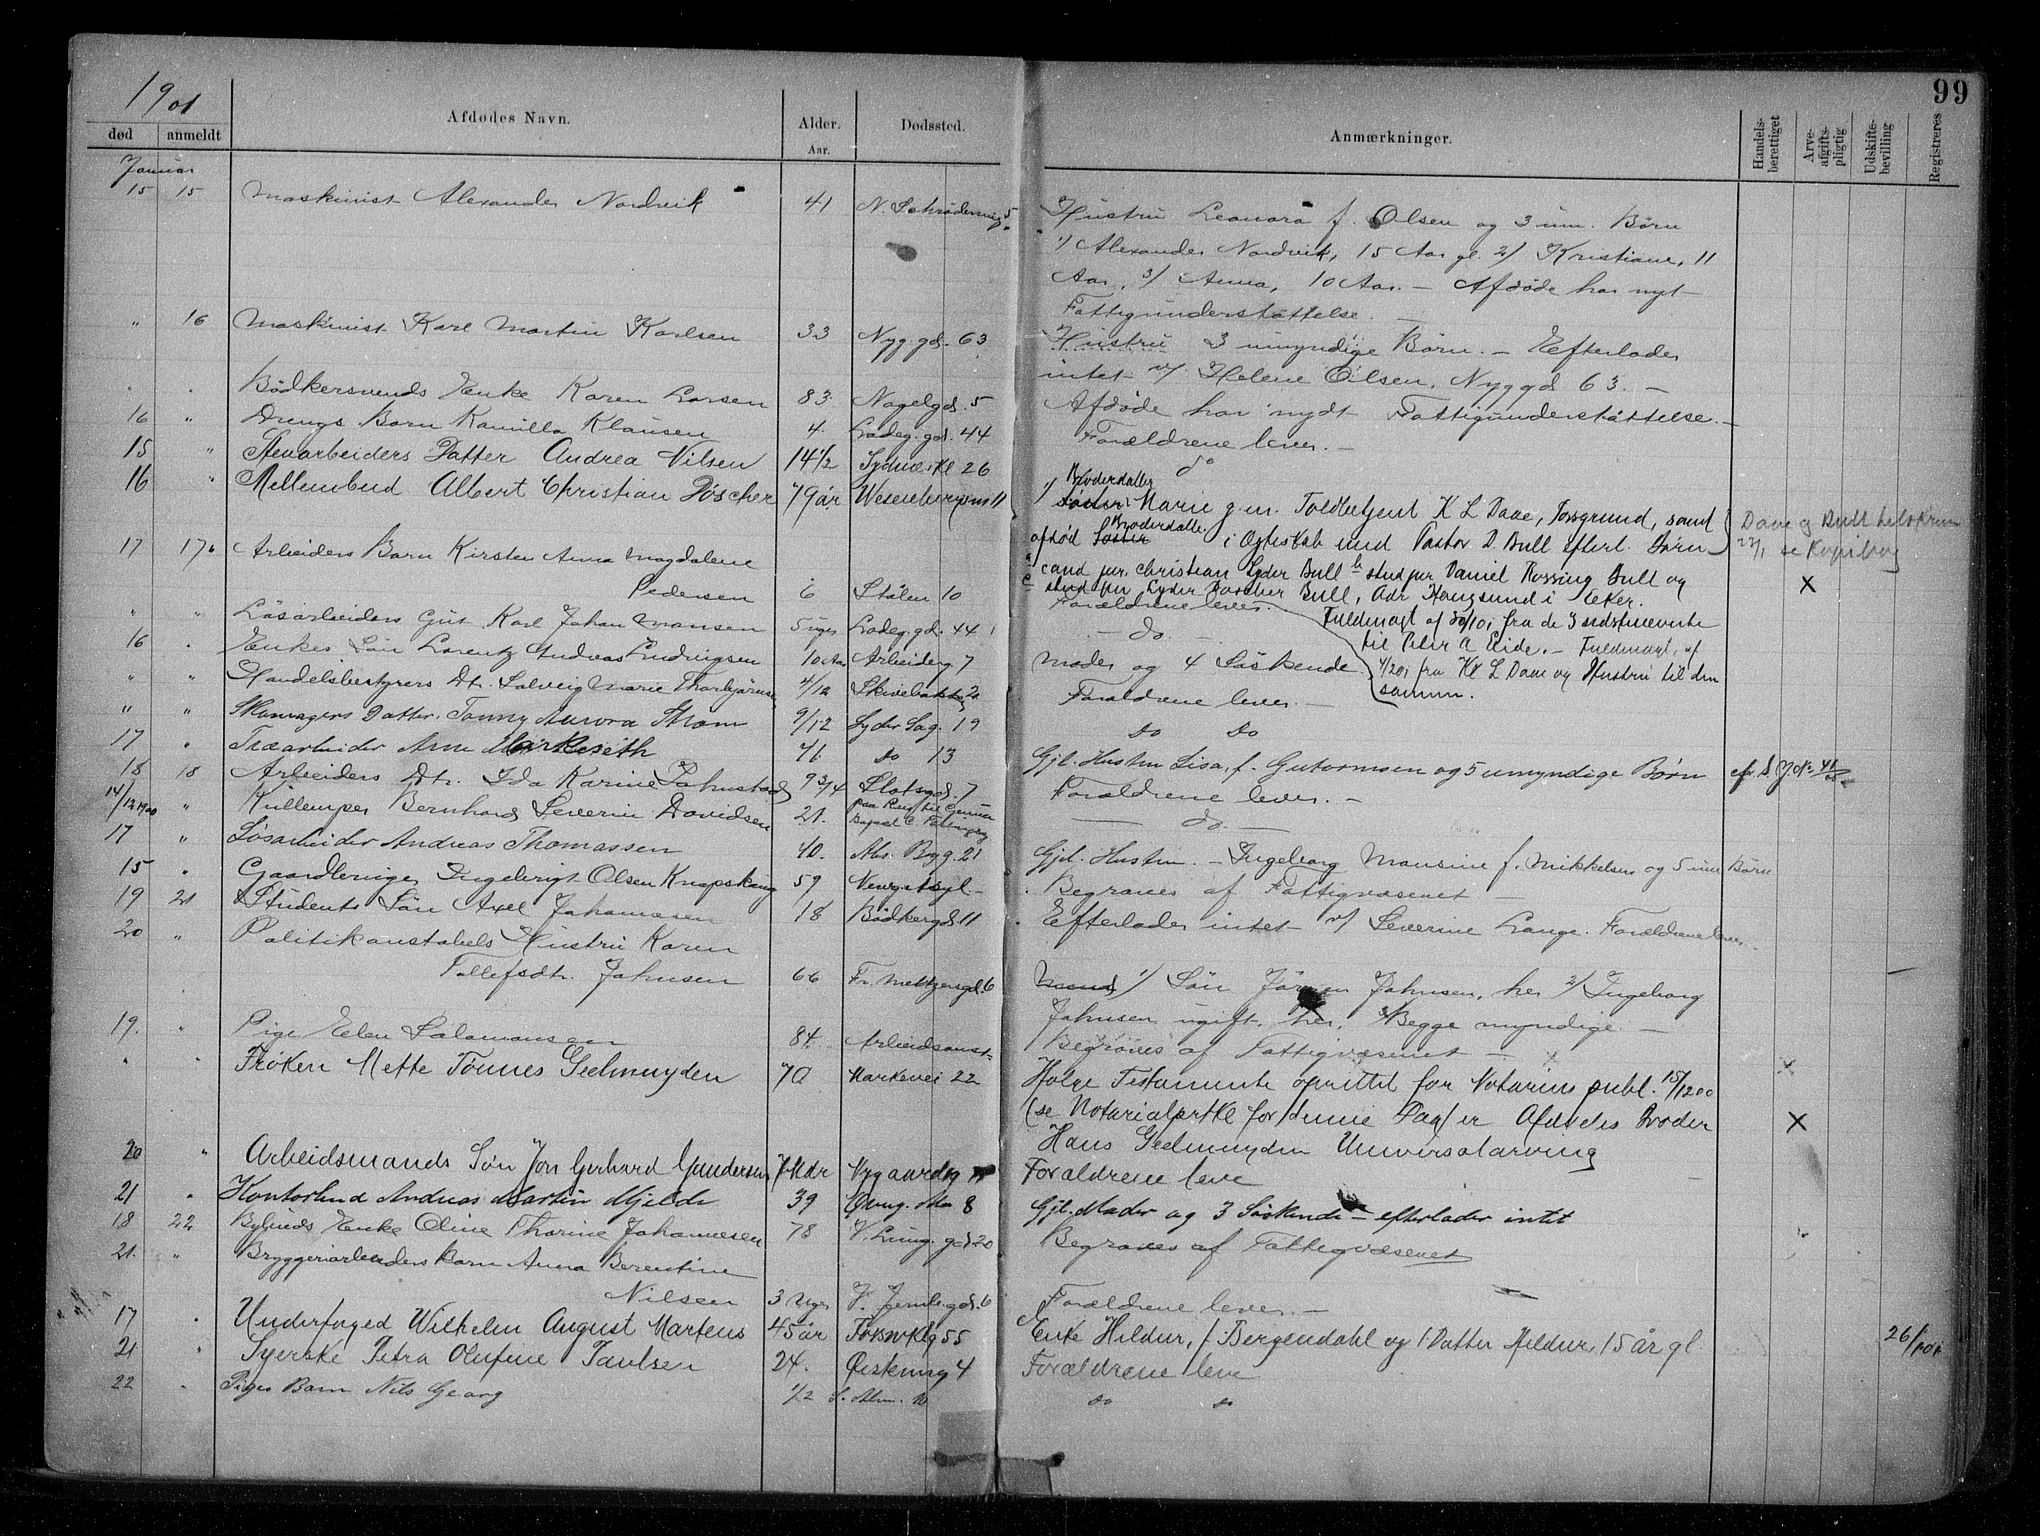 99
1901
død anmeldt Afdødes Navn. Alder. Aar. Dødssted. Anmærkninger. Handels-berettiget Arve-afgifts-pligtig Udskifte-bevilling Registreres
Januar
15 15 Maskinist Alexander Nordvik 41 N. Schrödersmug 5 Hustru Leonora f. Olsen og 3 um. Børn
1/ Alexander Nordvik, 15 Aar gl. 2/ Kristiane, 11
Aar, 3/ Anna, 10 Aar. – Afdöde har nyt
Fattigunderstøttelse. –
" 16 Maskinist Karl Martin Karlsen 33 Nyg. gd. 63 Hustru 3 umyndige Børn. – Efterlader
intet v/ Helene Olsen, Nyggd 63. –
" " Bödkersvends Enke Karen Larsen 83 Nagelgd. 5 Afdöde har nydt Fattigunderstøttelse. –
16 " Drengs Barn Kamilla Klausen 4 Ladeg. gd. 44 Forældrene lever. –
15 " Stenarbeiders Datter Andrea Nilsen 14 1/2 Sydneskl 26 do
16 " Mellembud Albert Christian Döscher 79 år Wesenbergsm 11 1) Broderdatter Søster Marie g. m. Toldbetjent K L Daae, Porsgrund, samt
afdød Søster Broderdatter i Ægteskab med Pastor D. Bull efterl. Børn
a cand jur. Christian Lyder Bull b stud jur Daniel Rossing Bull og
c stud jur Lyder Döscher Bull, Adr Haugsund i Eker. X
Daae og Bull tilskrevn
22/1 se Kopibog
Fuldmagt af 30/1 01 fra de 3 sidstnævnte
til Peter A Eide. – Fuldmagt af
1/2 01 fra K L Daae og Hustru til den
samme.
17 17 Arbeiders Barn Kirsten Anna Magdalene
Pedersen 6 Stölen 10 Forældrene lever.
" " Løsarbeiders Gut Karl Johan Monsen 5 uger Ladeg. gd. 44 – do. –
16 " Enkes Sön Lorentz Andreas Ludvigsen 10 Aar Arbeiderg. 7 Moder og 4 Søskende
" " Handelsbestyrers Dtr. Solveig Marie Thorbjörnsen 4/12 Skivebakken 2 Forældrene lever. –
" " Skomagers Datter Tonny Aurora Strøm 9/12 Lyder Sag. 19 Do Do
17 " Træarbeider Arne Mirkeseth 46 Do 13 Gjl. Hustru Lisa, f. Gutormsen og 5 umyndige Børn
18 18 Arbeiders Dtr. Ida Karine Johnstad 9 3/4 Slotsgd. 7 Forældrene lever. –
14/12 1900 " Kullemper Bernhard Severin Davidsen 21. – do. –
17 " Løsarbeider Andreas Thomassen 40. Als. Byg. 21 Gjl. Hustru – Ingeborg Monsine f. Mikkelsen og 5 um Børn
15 " Gaardbruger Ingebrigt Olsen Knapskaug 59 Begraves af Fattigvæsenet –
19 21 Students Sön Axel Johannesen 18 Bödkergd 11 Efterlader intet v/ Severine Lange. Forældrene lever.
20 " Politikonstabels Hustru Karen
Tollefsdtr. Johnsen 66 Fr. Meltzersgd. 6 Mand 1/ Sön Jörgen Johnsen, her 2/ Ingeborg
Johnsen ugift, her. Begge myndige. –
19. " Pige Elen Salamonsen 84. Arbeidsanst. Begraves af Fattigvæsenet –
" " Frøken Mette Tönnes Geelmuyden 70 Markevei 22 Ifølge Testamente oprettet for Notarius publ. 15/12 00
(se Notarialprtkl for denne Dag) er Afdødes Broder X
Hans Geelmuyden Universalarving
20 " Arbeidsmands Søn Jon Gerhard Gundersen 7 Mdr Nygaardsg Forældrene leve
21 " Kontorbud Andreas Martin Mjelde 39 Øvreg. Alm 8 Gjl. Moder og 3 Søskende – efterlader intet
18 22 Bybuds Enke Oline Thorine Johannesen 78 V. Lung. gd 20 Begraves af Fattigvæsenet
21. " Bryggeriarbeiders Barn Anna Berentine
Nilsen 3 Uger Forældrene lever. –
17 " Underfoged Wilhelm August Martens 45 år Foswklg 55 Enke Hildur, f. Bergendahl og 1 Datter Hildur, 15 år gl. 26/1 01
21 " Syerske Petra Olufine Paulsen 24. 4 Forældrene leve
22 " Piges Barn Nils Georg 1/2 S. Alm. 10 do do